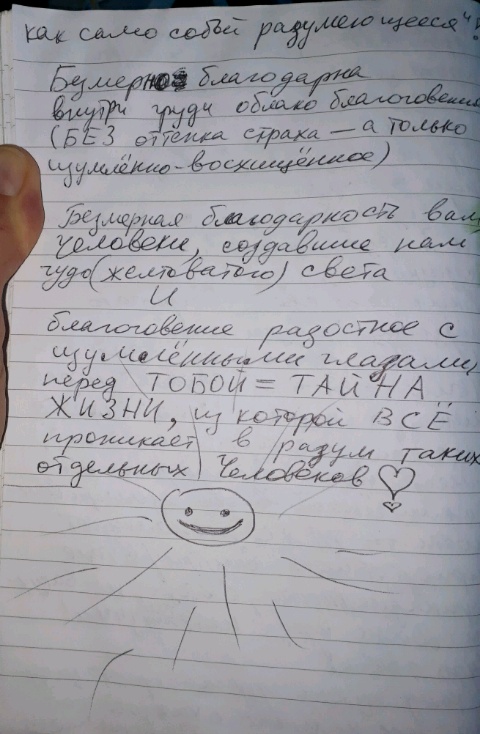 как само собой разумеющееся"!
Безмерно благодарна
внутри груди облако благоговения
(БЕЗ оттенка страха — а только
изумлённо-восхищённое)
Безмерная благодарность вам,
человеки, создавшие нам
чудо (желтоватого) света
И
благоговение радостное с
изумлёнными глазами,
перед ТОБОЙ = ТАЙНА
ЖИЗНИ, из которой ВСЁ
проникает в разум таких
отдельных Человеков